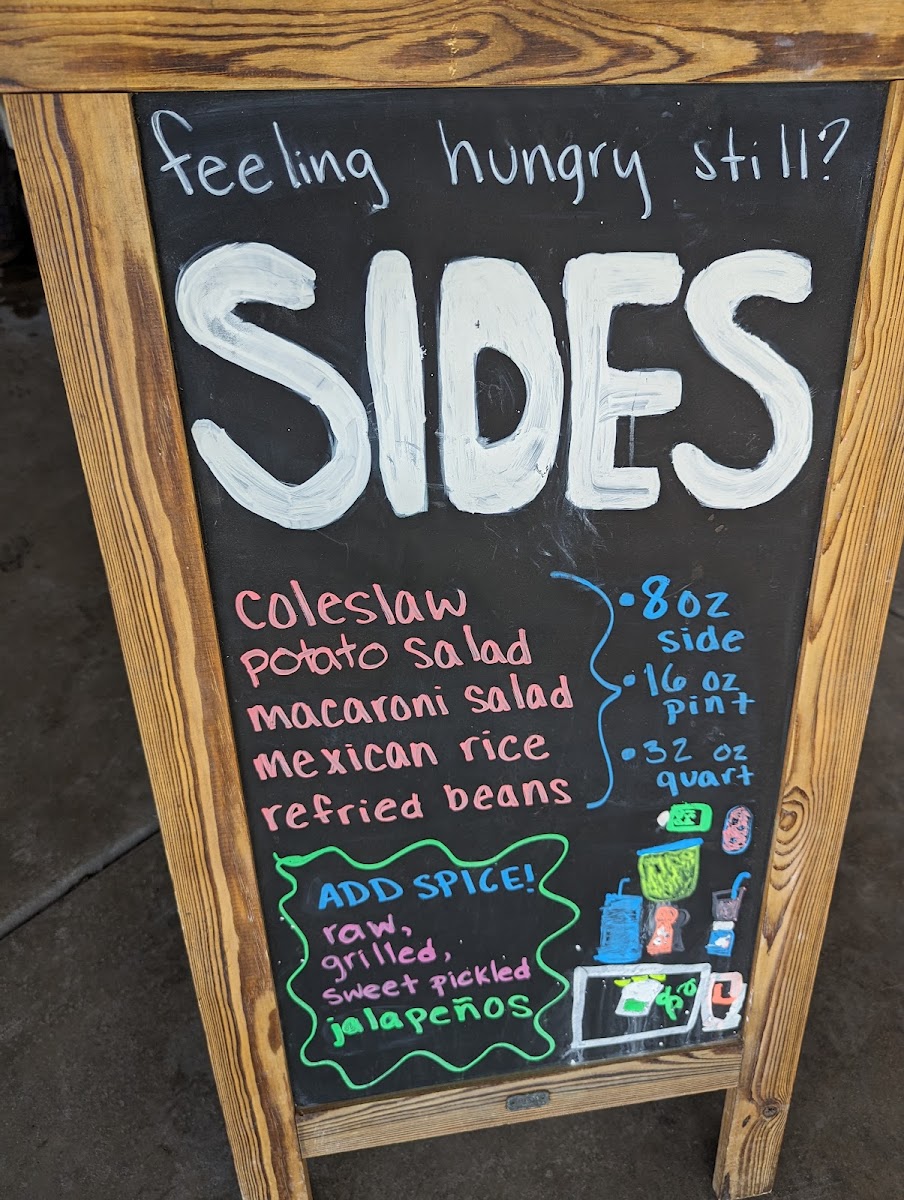 feeling hungry still?
SIDES
coleslaw
potato salad
macaroni salad
mexican rice
refried beans
•8 oz
side
•16 oz
pint
•32 oz
quart
ADD SPICE!
raw,
grilled,
sweet pickled
jalapeños